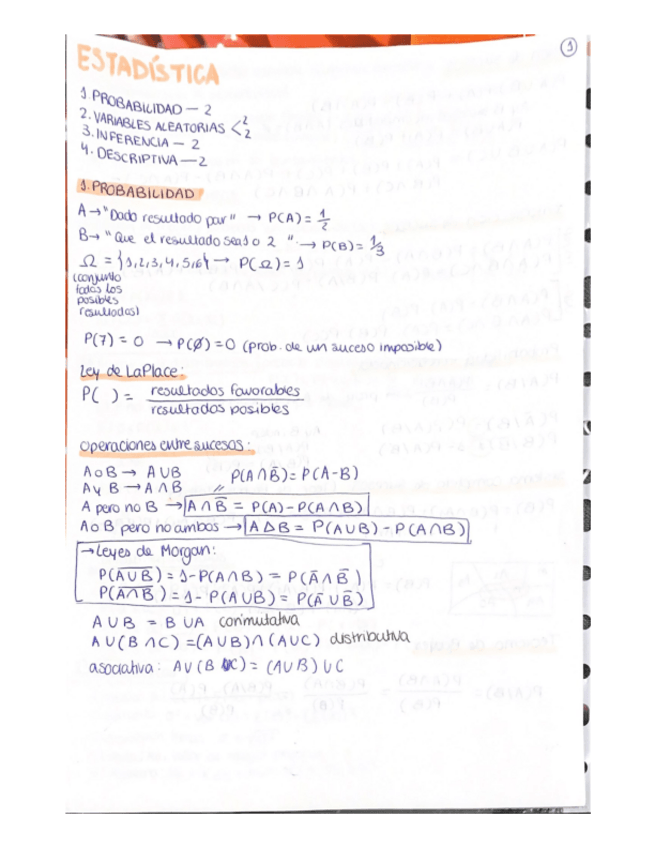 1
ESTADÍSTICA
1. PROBABILIDAD — 2
2. VARIABLES ALEATORIAS < 2 2
3. INFERENCIA — 2
4. DESCRIPTIVA — 2
1. PROBABILIDAD
A → "Dado resultado par" → P(A) = 1/2
B → "Que el resultado sea 1 o 2" → P(B) = 1/3
Ω = {1,2,3,4,5,6} → P(Ω) = 1
(conjunto
todos los
posibles
resultados)
P(7) = 0 → P(Ø) = 0 (prob. de un suceso imposible)
Ley de LaPlace:
P( ) = resultados favorables
resultados posibles
Operaciones entre sucesos:
A o B → A∪B P(A∩B̅) = P(A-B)
A y B → A∩B //
A pero no B → A∩B̅ = P(A) - P(A∩B)
A o B pero no ambos → A∆B = P(A∪B) - P(A∩B)
→ Leyes de Morgan:
P(A̅∪̅B̅) = 1-P(A∩B) = P(A̅∩B̅)
P(A̅∩̅B̅) = 1-P(A∪B) = P(A̅∪B̅)
A∪B = B∪A conmutativa
A∪(B∩C) = (A∪B)∩(A∪C) distributiva
asociativa: A∪(B∪C) = (A∪B)∪C